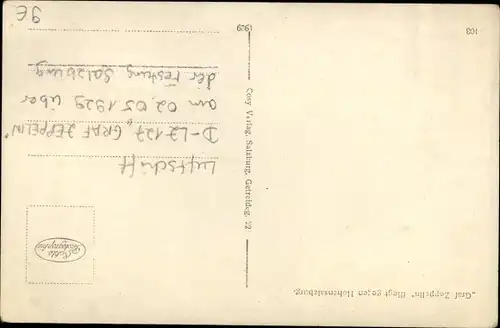 „Graf Zeppelin" fliegt gegen Hohensalzburg.
Luftschiff
D-LZ 127 „GRAF ZEPPELIN"
am 02 05 1929 über
der Festung Salzburg
Cosy Verlag, Salzburg, Getreideg. 22
103
1929
9E